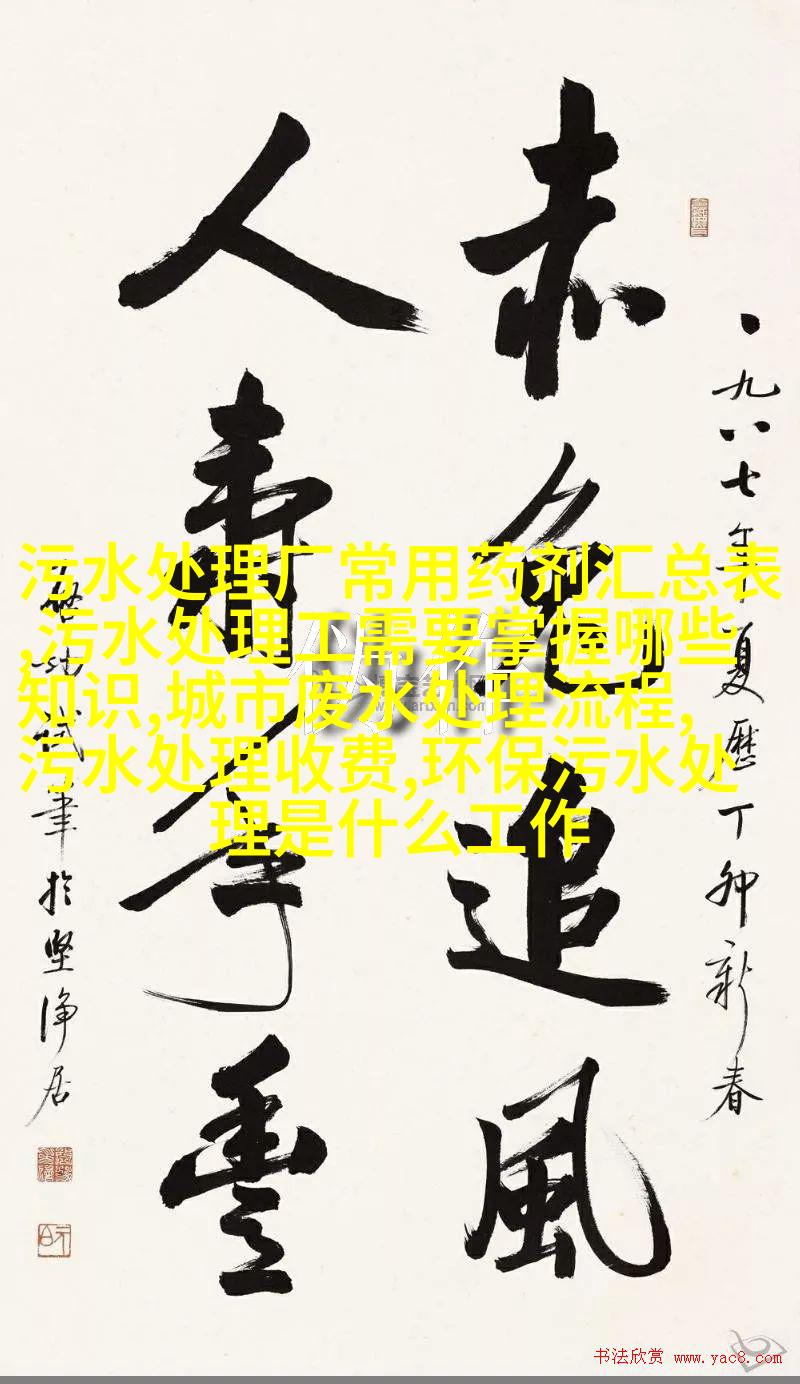 赤兔追風
人壽年豐
一九八七年夏歷丁卯新春
啓功試筆於堅淨居
污水处理厂常用药剂汇总表
,污水处理工需要掌握哪些
知识,城市废水处理流程,
污水处理收费,环保污水处
理是什么工作
书法欣赏 www.yac8.com